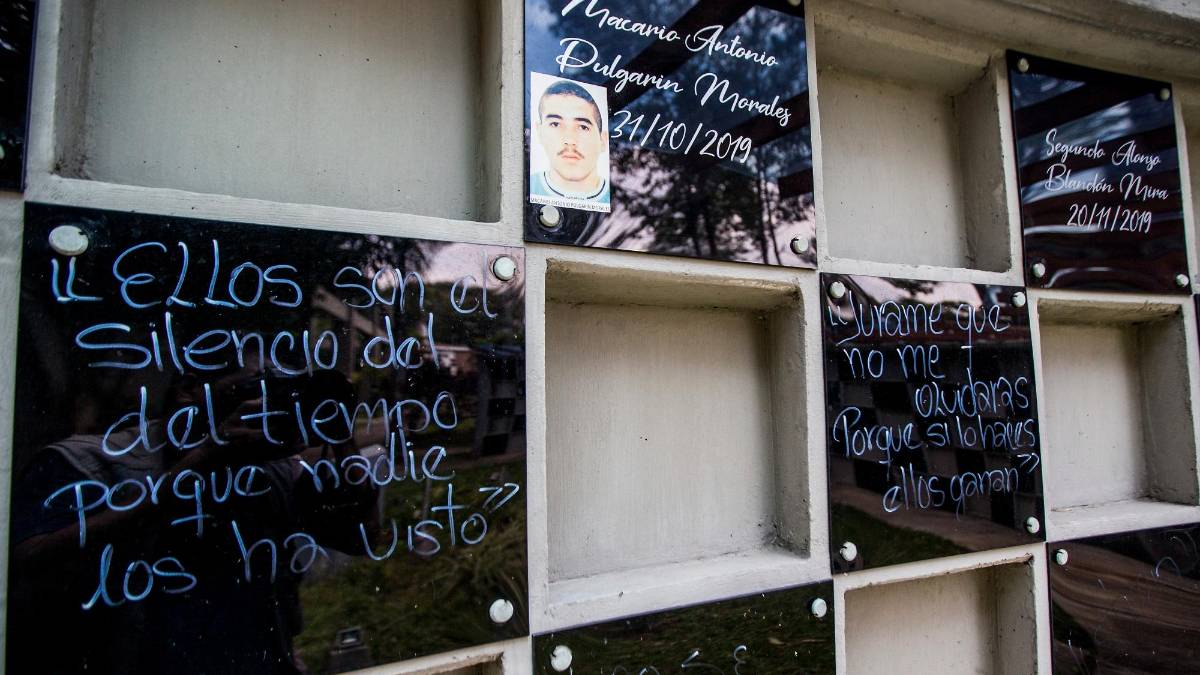 Macario Antonio
Pulgarin Morales
31/10/2019
Segundo Alonso
Blandón Mira
20/11/2019
"ELLOS son el
silencio del
del tiempo
porque nadie
los ha visto"
"Jurame que
no me
olvidaras
Porque si lo haces
ellos ganan"